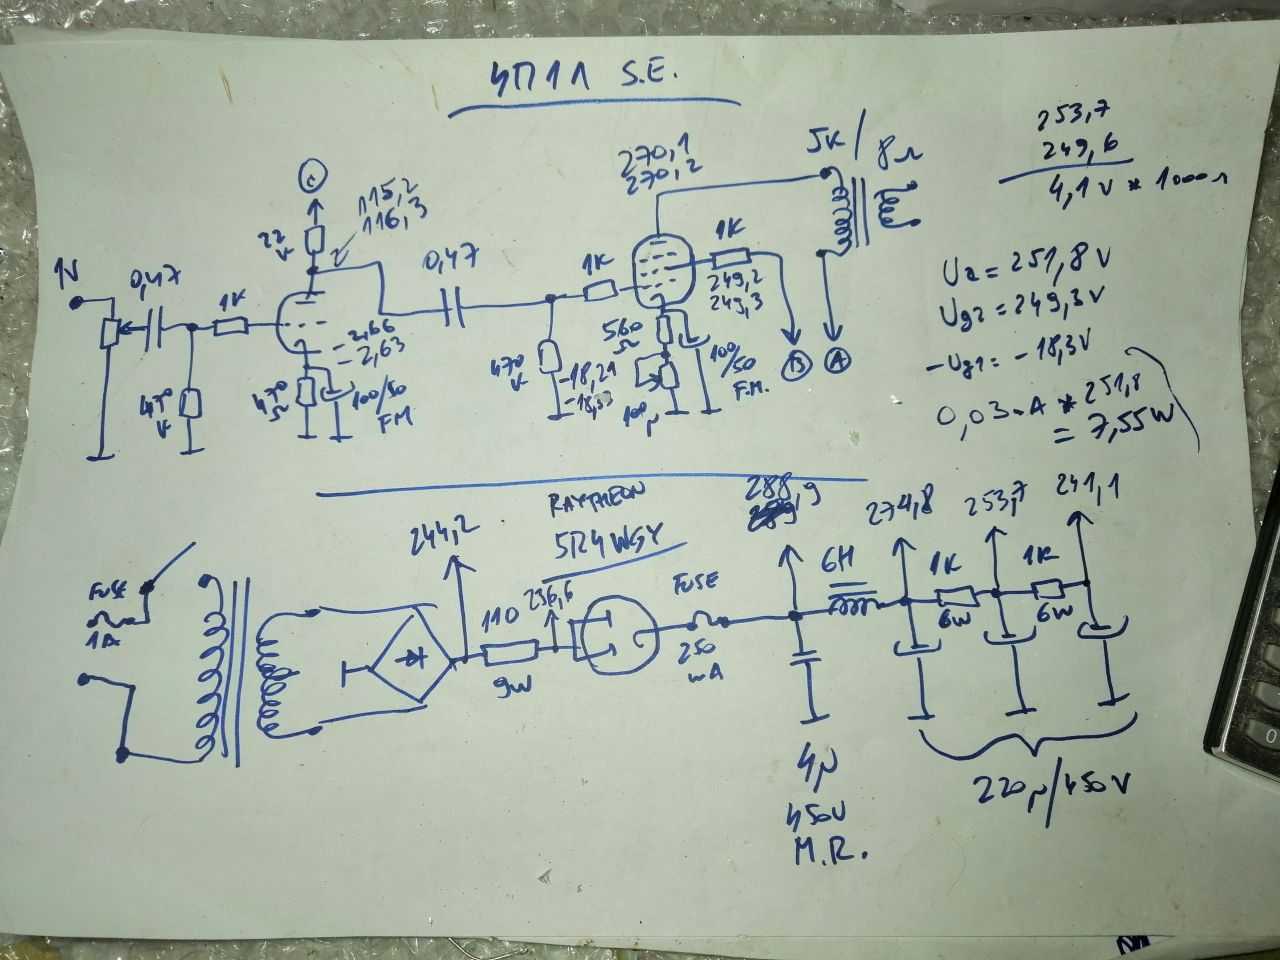 4П1Л S.E.
253,7
249,6
4,1V * 1000Ω
270,1
270,2
5K / 8Ω
115,2
116,3
22
K
1V
0,47
1K
0,47
1K
1K
249,2
249,3
-2,66
-2,63
470
K
470
Ω
100/50
F.M.
470
K
-18,21
560
Ω
100
µ
100/50
F.M.
B
A
Ua = 251,8V
Ug2 = 249,3V
-Ug1 = -18,3V
0,03 A * 251,8
= 7,55W
RAYTHEON
5R4WGY
244,2
288,9
274,8
253,7
241,1
FUSE
1A
110
9W
236,6
FUSE
250
mA
6H
1K
6W
1K
6W
4µ
450V
M.R.
220µ/450V
0